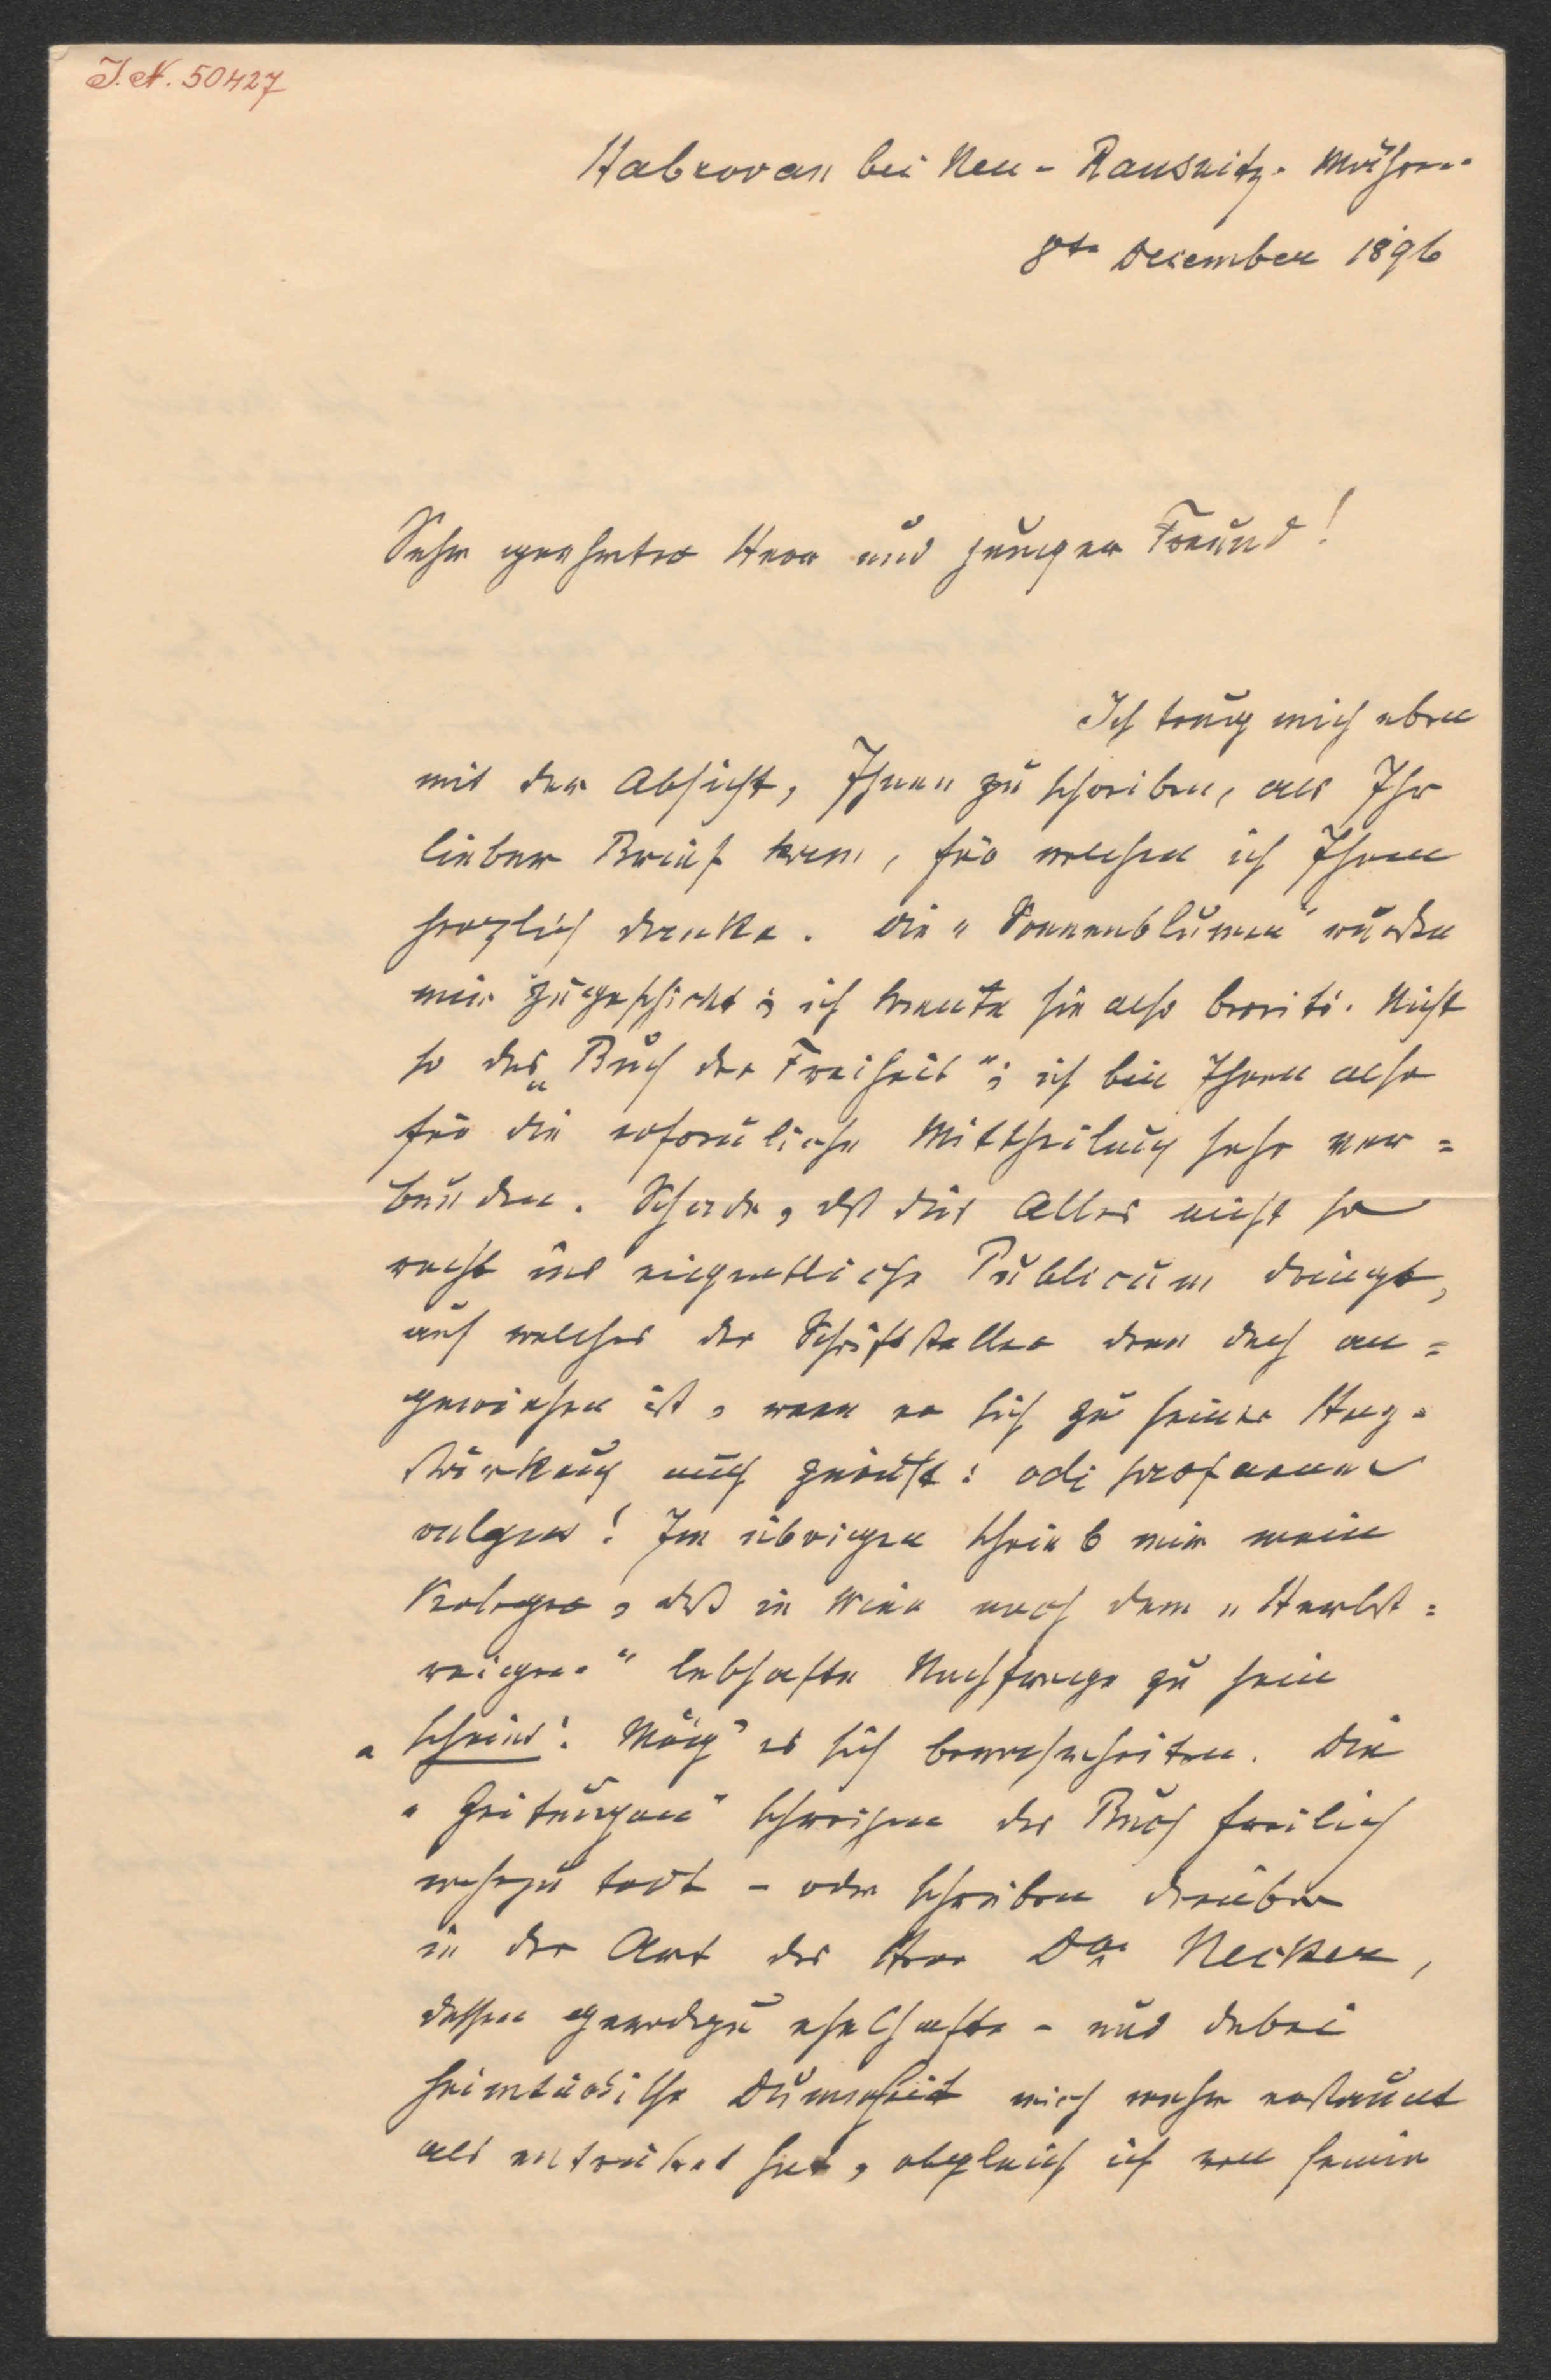 J. N. 50427
Habrovan bei Neu-Rausnitz. Mähren.
8te December 1896
Sehr geehrter Herr und junger Freund!
Ich trug mich eben
mit der Absicht, Ihnen zu schreiben, als Ihr
lieber Brief kam, für welchen ich Ihnen
herzlich danke. Die "Sonnenblumen" wurden
mir zugeschickt; ich kannte sie also bereits. Nicht
so das „Buch der Freiheit"; ich bin Ihnen also
für die erfreuliche Mittheilung sehr ver=
bunden. Schade, dß dies Alles nicht so
recht ins eigentliche Publicum dringt,
auf welches der Schriftsteller denn doch an=
gewiesen ist, wenn er sich zu seiner Herz=
stärkung auch zuruft: odi profanum
vulgus! Im übrigen schrieb mir mein
Verleger, dß in Wien nach dem "Herbst=
reigen" lebhafte Nachfrage zu sein
"scheint". Mög' es sich bewahrheiten. Die
"Zeitungen" schweigen das Buch freilich
nahezu todt – oder schreiben darüber
in der Art des Herr Dor Necker,
dessen geradezu eselhafte – und dabei
heimtückische Dummheit mich mehr erstaunt
als entrüstet hat, obgleich ich von seiner